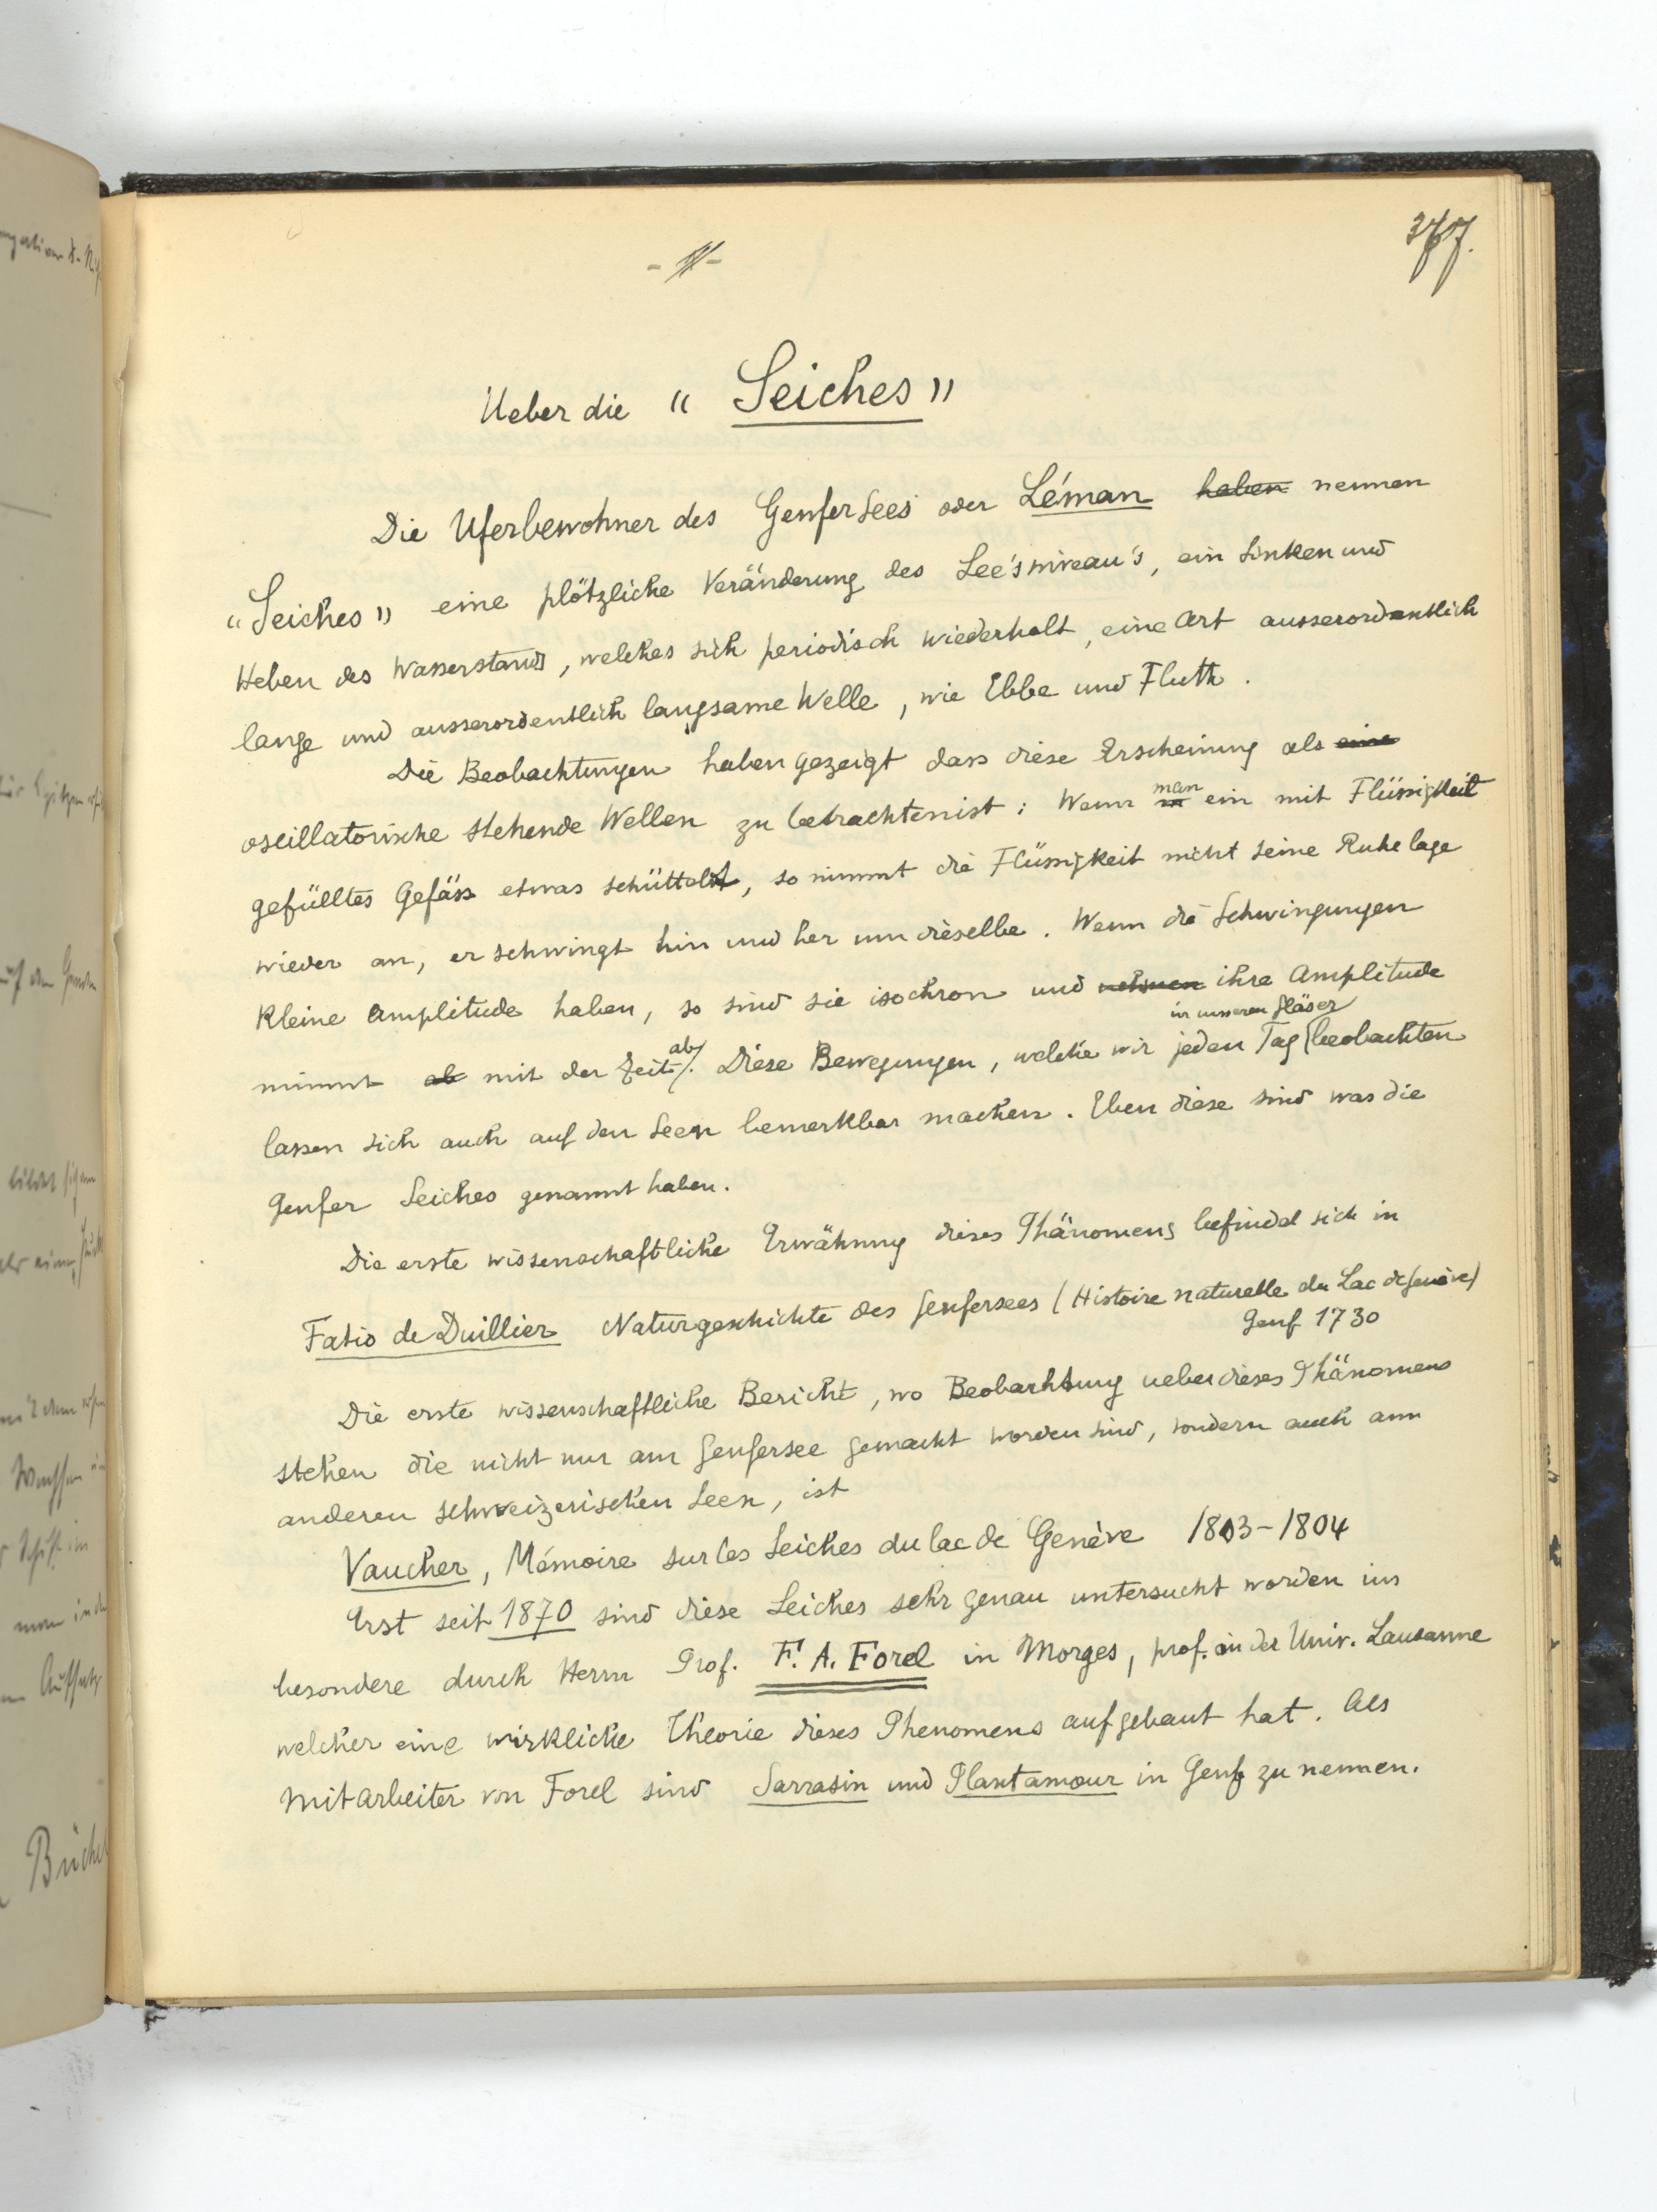 377.
- 1 -
Ueber die " Seiches "
Die Uferbewohner des Genfersees oder Léman haben nennen
" Seiches " eine plötzliche Veränderung des See's niveau's, ein Sinken und
Heben des Wasserstands, welches sich periodisch wiederholt, eine Art ausserordentlich
lange und ausserordentlich langsame Welle, wie Ebbe und Fluth.
Die Beobachtungen haben gezeigt dass diese Erscheinung als eine
oscillatorische stehende Wellen zu betrachten ist: Wenn man ein mit Flüssigkeit
gefülltes Gefäss etwas schüttelt, so nimmt die Flüssigkeit nicht seine Ruhelage
wieder an, er schwingt hin und her um dieselbe. Wenn die Schwingungen
kleine Amplitude haben, so sind sie isochron und nehmen ihre Amplitude
in unseren Gläser
nimmt ab mit der Zeit ab. Diese Bewegungen, welche wir jeden Tag beobachten
lassen sich auch auf den Seen bemerkbar machen. Eben diese sind was die
Genfer Seiches genannt haben.
Die erste wissenschaftliche Erwähnung dieses Phänomens befindet sich in
Fatio de Duillier Naturgeschichte des Genfersees (Histoire naturelle du Lac de Genève)
Genf 1730
Die erste wissenschaftliche Bericht, wo Beobachtung ueber dieses Phänomens
stehen die nicht nur am Genfersee gemacht worden sind, sondern auch am
anderen schweizerischen Seen, ist
Vaucher, Mémoire sur les Seiches du lac de Genève 1803-1804
Erst seit 1870 sind diese Seiches sehr genau untersucht worden ins
besondere durch Herrn Prof. F. A. Forel in Morges, prof. an der Univ. Lausanne
welcher eine wirkliche Theorie dieses Phenomens aufgebaut hat. Als
Mitarbeiter von Forel sind Sarrasin und Plantamour in Genf zu nennen.